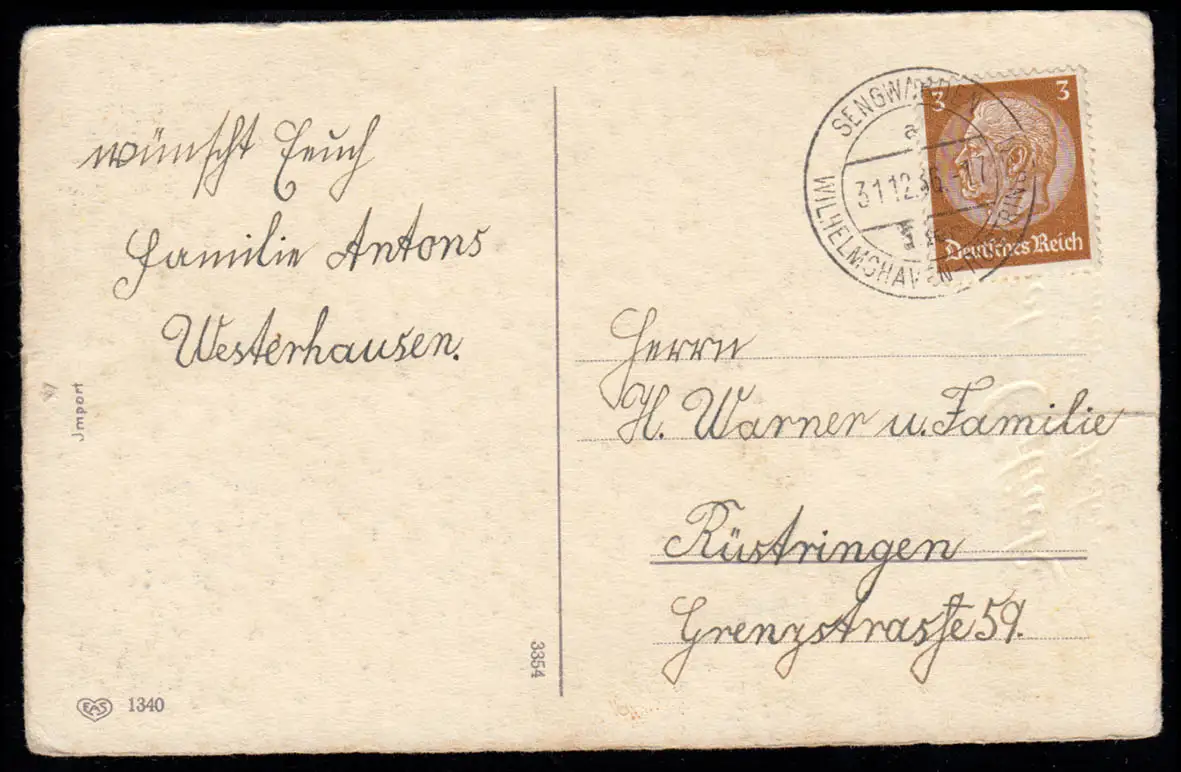 wünscht Euch
Familie Antons
Westerhausen.
Jmport
EAS 1340
3354
SENGWARDEN
a
31.12.36.-17
WILHELMSHAVEN-
3 3
Deutsches Reich
Herrn
H. Warner u. Familie
Rüstringen
Grenzstrasse 59.